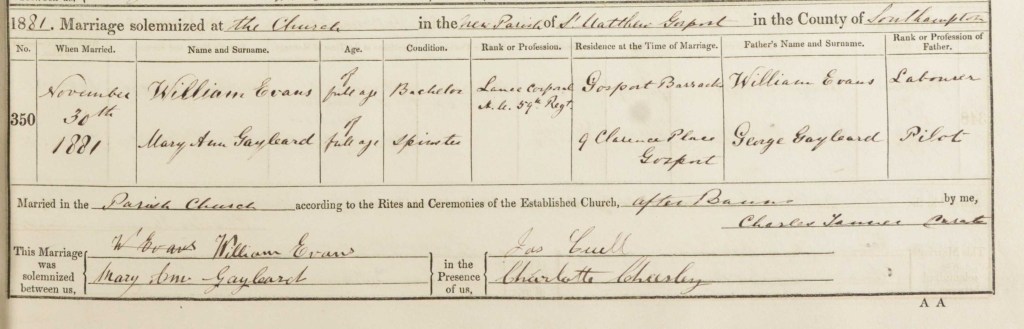 1881. Marriage solemnized at the Church in the New Parish of St Matthew Gosport in the County of Southampton
No. When Married. Name and Surname. Age. Condition. Rank or Profession. Residence at the Time of Marriage. Father's Name and Surname. Rank or Profession of Father.
350 November 30th 1881
William Evans of full age Bachelor Lance Corporal 59th Regt. Gosport Barracks William Evans Labourer
Mary Ann Gayleard of full age Spinster 9 Clarence Place Gosport George Gayleard Pilot
Married in the Parish Church according to the Rites and Ceremonies of the Established Church, after Banns by me,
Charles Tanner Curate
This Marriage was solemnized between us, W Evans William Evans
Mary Ann Gayleard
in the Presence of us, Jas Cuell
Charlotte
A A